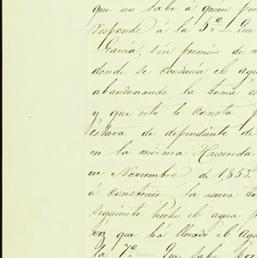 que no sabe á quien per
responde á la 5ª = Que
García, sin permiso de n
donde se conducía el agu
abandonando la toma es
y, que esto le consta p
estava de dependiente de
en la misma Hacienda
en Noviembre de 1853
á construir la nueva to
siguiente hubo el agua p
vez que ha llevado el Agu
la 7ª = Que sabe por